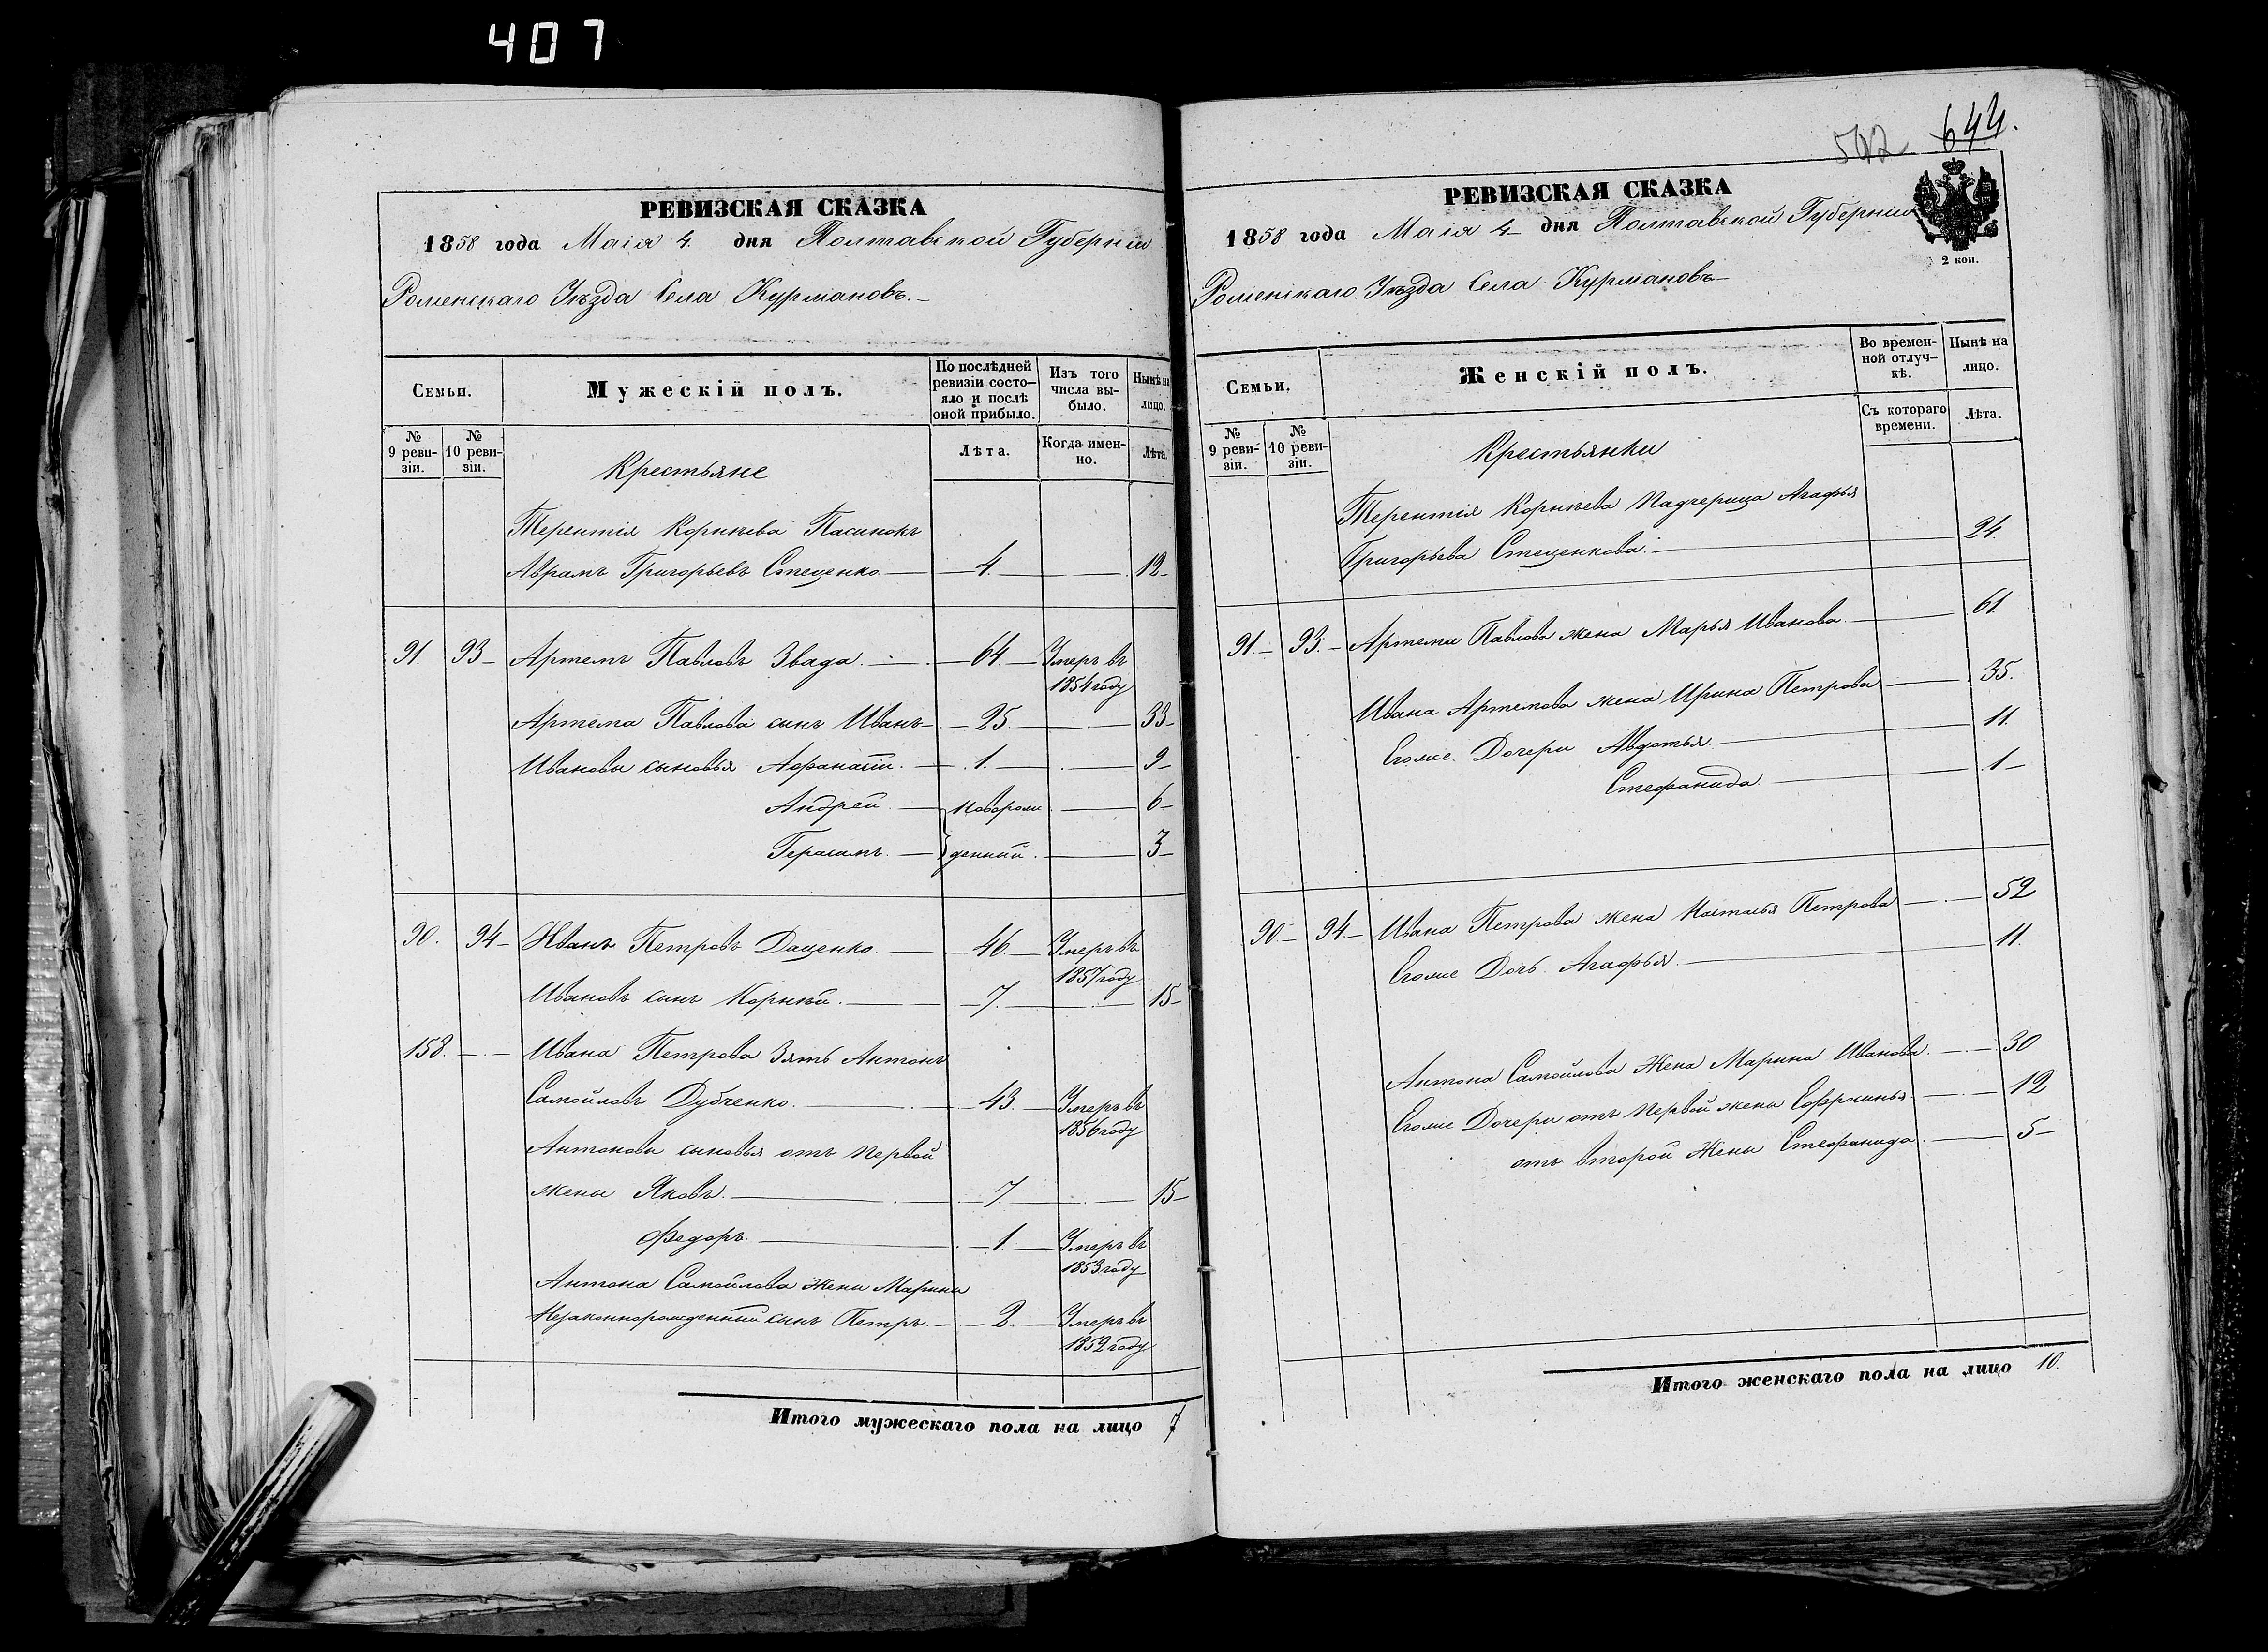 407
РЕВИЗСКАЯ СКАЗКА
1858 года Маія 4 дня Полтавской Губерніи
Роменскаго Уѣзда Села Курмановъ.
Семьи.
Мужескій полъ.
По послѣдней ревизіи состояло и послѣ оной прибыло.
Изъ того числа выбыло.
Нынѣ на лицо.
№ 9 ревизіи.
№ 10 ревизіи.
Крестьяне
Лѣта.
Когда именно.
Лѣта.
Терентія Корнѣева Пасинокъ
Аврамъ Григорьевъ Стеценко. 4. 12
91. 93 Артемъ Павловъ Звада. 64. Умеръ въ
1854 году
Артема Павлова сынъ Иванъ 25. 33
Ивановы сыновья Афанасій. 1. 9
Андрей.Новорож 6
Герасимъ. денніи. 3
90. 94 Иванъ Петровъ Даценко. 46. Умеръ въ
1857 году
Ивановъ сынъ Корнѣй. 7. 15
158. Ивана Петрова Зять Антонъ
Самойловъ Дубченко. 43. Умеръ въ
1856 году
Антоновы сыновья отъ первой
жены Яковъ. 7. 15
Федоръ. 1. Умеръ въ
1853 году
Антона Самойлова жены Марины
Незаконнорожденный сынъ Петръ. 2. Умеръ въ
1852 году
Итого мужескаго пола на лицо 7
644.
РЕВИЗСКАЯ СКАЗКА
1858 года Маія 4 дня Полтавской Губерніи
2 коп.
Роменскаго Уѣзда Села Курмановъ
Семьи.
Женскій полъ.
Во временной отлучкѣ.
Нынѣ на лицо.
№ 9 ревизіи.
№ 10 ревизіи.
Крестьянки
Съ котораго времени.
Лѣта.
Терентія Корнѣева Падчерица Агафья
Григорьева Стеценкова. 24.
91. 93. Артема Павлова жена Марья Иванова. 61
Ивана Артемова жена Ирина Петрова 35.
Егоже Дочери Авдотья. 11.
Стефанида. 1
90 94. Ивана Петрова жена Настасья Петрова 52
Егоже Дочь Агафья. 11.
Антона Самойлова Жена Марина Иванова. 30
Егоже Дочери отъ первой жены Ефросинья 12
отъ второй Жены Стефанида. 5
Итого женскаго пола на лицо 10.